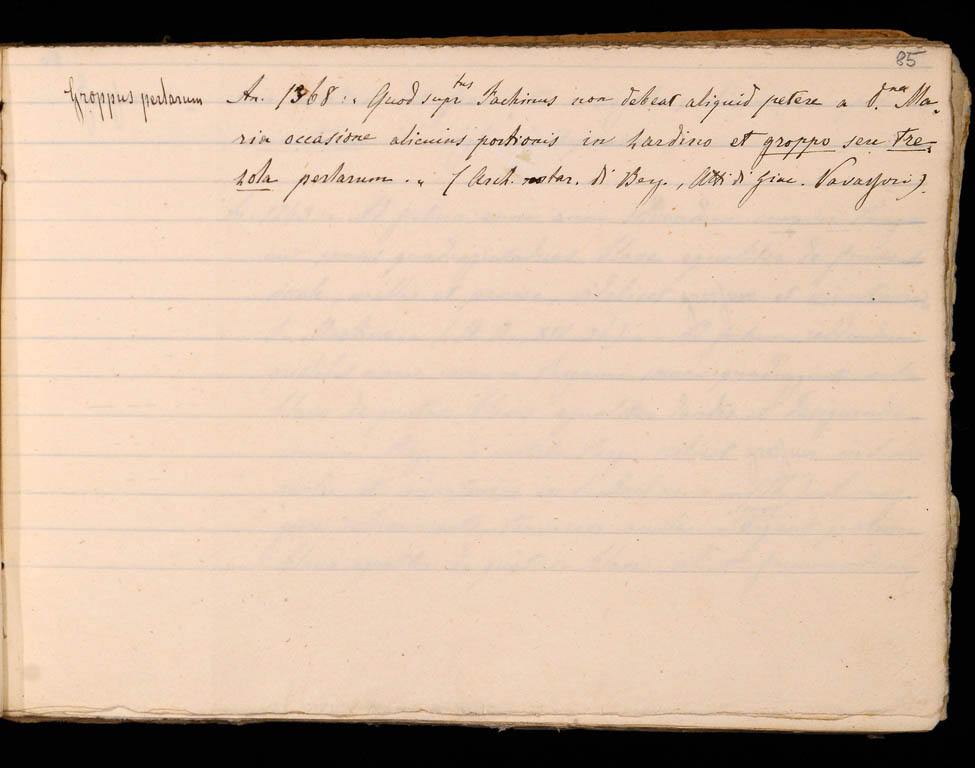 85
Groppus perlarum An. 1368: „ Quod supr.tus Fachinus non debeat aliquid petere a d.na Ma-
ria occasione alicuius portionis in zardino et groppo seu tre-
zola perlarum. „ (Arch. notar. di Berg., Atti di Giac. Vavassori).